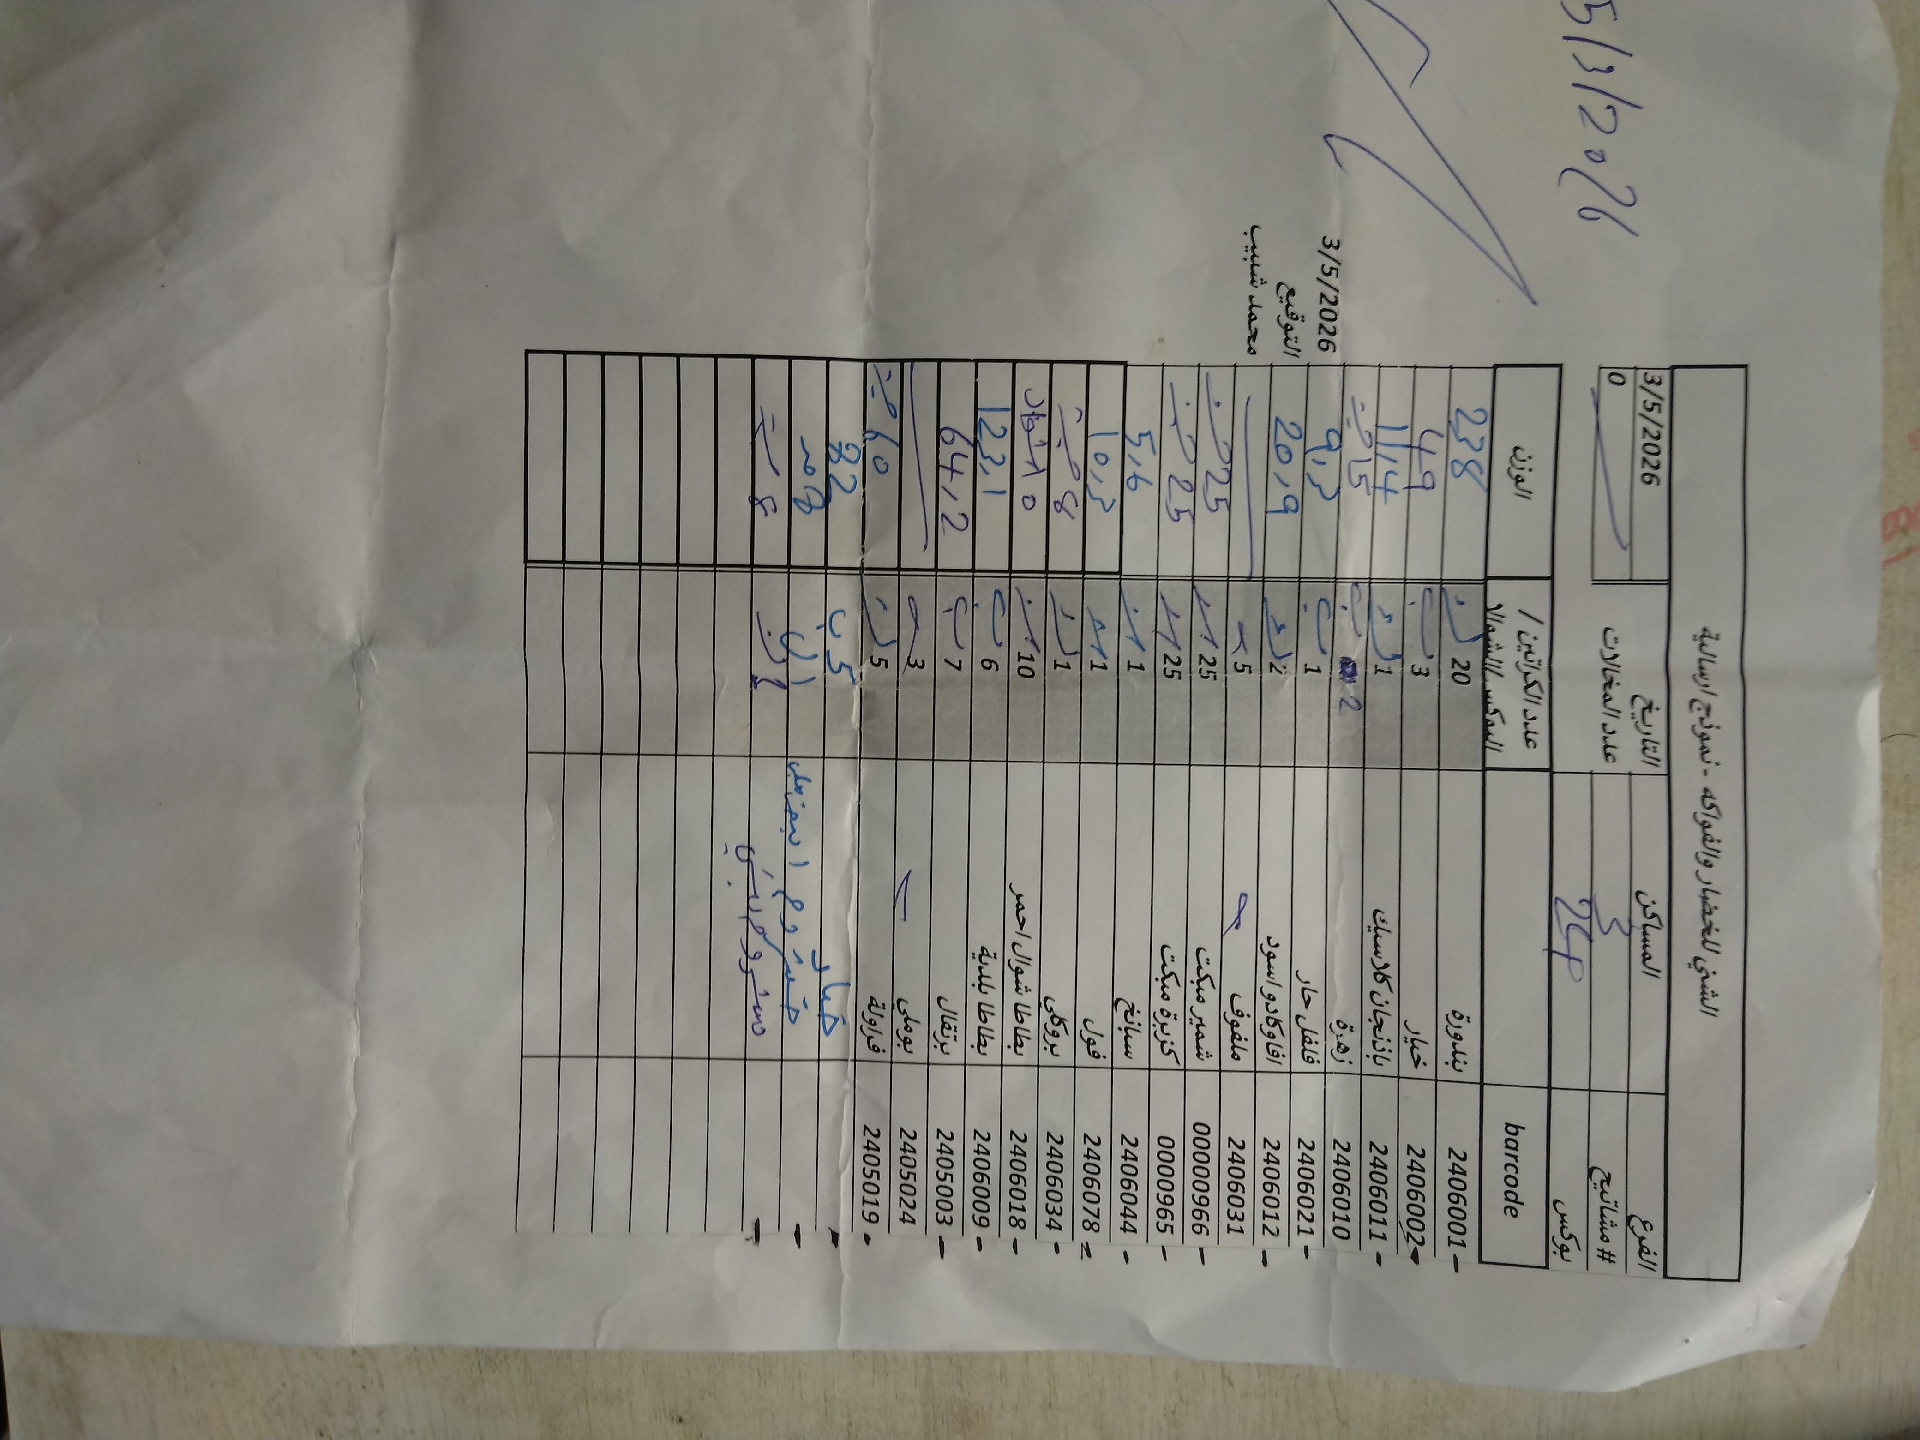 الشني للخضار والفواكه - نموذج ارسالية
الفرع المساكن التاريخ 3/5/2026
# مشاتيح 3 عدد المخالات 0
بوكس 24
barcode عدد الكراتين / البوكس / الشوالا الوزن
2406001 بندورة 20 238
2406002 خيار 3 49
2406011 باذنجان كلاسيك 1 11,4
2406010 زهرة 2 15 حبة
2406021 فلفل حار 1 9,3
2406012 افاوكادو اسود 2 20,9
2406031 ملفوف 5
00000966 شمير مبكت 25 25
0000965 كزبرة مبكت 25 25
2406044 سبانخ 1 5,6
2406078 فول 1 10,3
2406034 بروكلي 1 8 حبة
2406018 بطاطا شوال احمر 10 10 شوال
2406009 بطاطا بلدية 6 123,1
2405003 برتقال 7 64,2
2405024 بوملي 3
2405019 فراولة 5 60 حبة
خيار 82
8
3/5/2026
التوقيع
محمد شبيب
5/3/2026